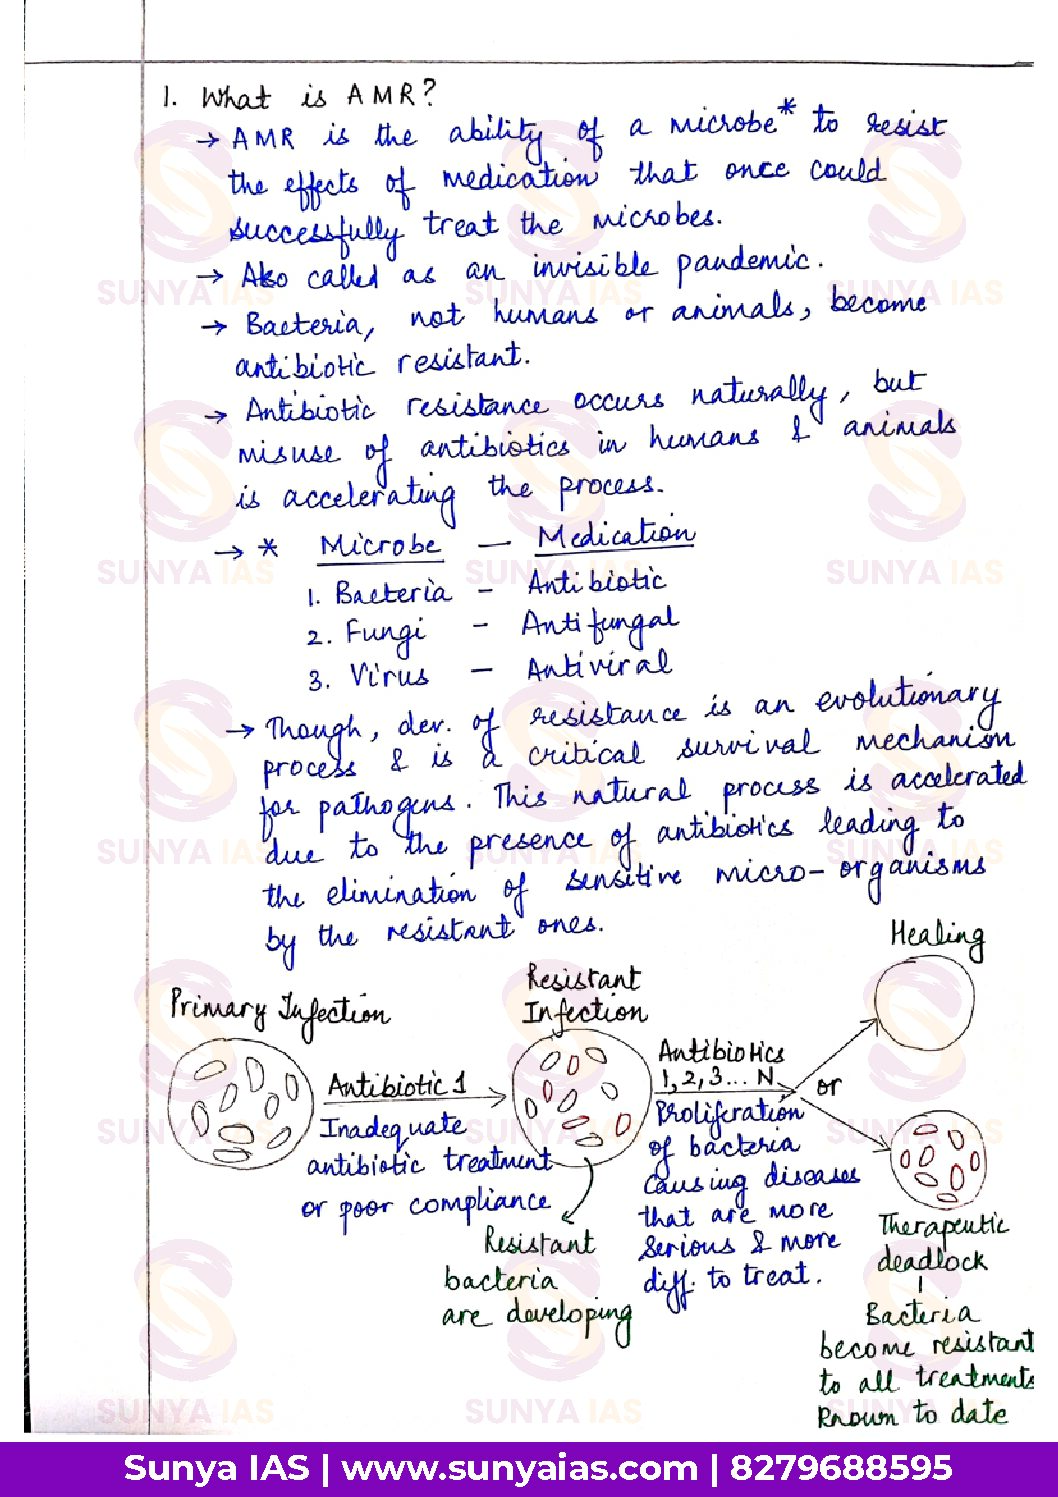 1. What is AMR?
→ AMR is the ability of a microbe* to resist
the effects of medication that once could
successfully treat the microbes.
→ Also called as an invisible pandemic.
→ Bacteria, not humans or animals, become
antibiotic resistant.
→ Antibiotic resistance occurs naturally, but
misuse of antibiotics in humans & animals
is accelerating the process.
→ * Microbe — Medication
1. Bacteria - Antibiotic
2. Fungi - Antifungal
3. Virus - Antiviral
→ Though, dev. of resistance is an evolutionary
process & is a critical survival mechanism
for pathogens. This natural process is accelerated
due to the presence of antibiotics leading to
the elimination of sensitive micro-organisms
by the resistant ones.
Primary Infection
Antibiotic 1
Inadequate
antibiotic treatment
or poor compliance
Resistant
Infection
Resistant
bacteria
are developing
Antibiotics
1, 2, 3... N
Proliferation
of bacteria
causing diseases
that are more
serious & more
diff. to treat.
Healing
or
Therapeutic
deadlock
Bacteria
become resistant
to all treatments
known to date
SUNYA IAS SUNYA IAS SUNYA IAS
SUNYA IAS SUNYA IAS SUNYA IAS
SUNYA IAS SUNYA IAS SUNYA IAS
SUNYA IAS SUNYA IAS SUNYA IAS
SUNYA IAS SUNYA IAS SUNYA IAS
Sunya IAS | www.sunyaias.com | 8279688595